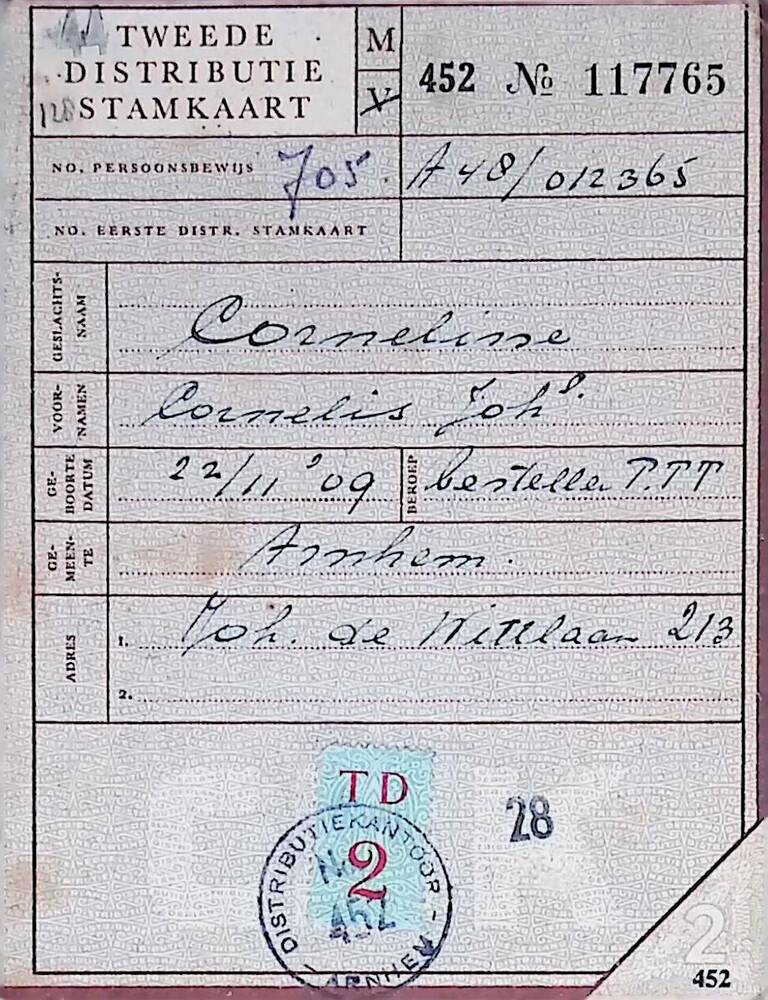 TWEEDE
DISTRIBUTIE
STAMKAART
128
M
V
452 № 117765
NO. PERSOONSBEWIJS 705. A 48/012365
NO. EERSTE DISTR. STAMKAART
GESLACHTS-
NAAM
Cornelisse
VOOR-
NAMEN
Cornelis Johs.
GE-
BOORTE
DATUM
22/11 '09
BEROEP
besteller P.T.T
GE-
MEEN-
TE
Arnhem.
ADRES
1. Joh. de Wittlaan 213
2.
TD
2
DISTRIBUTIEKANTOOR
No
452
ARNHEM
28
2
452